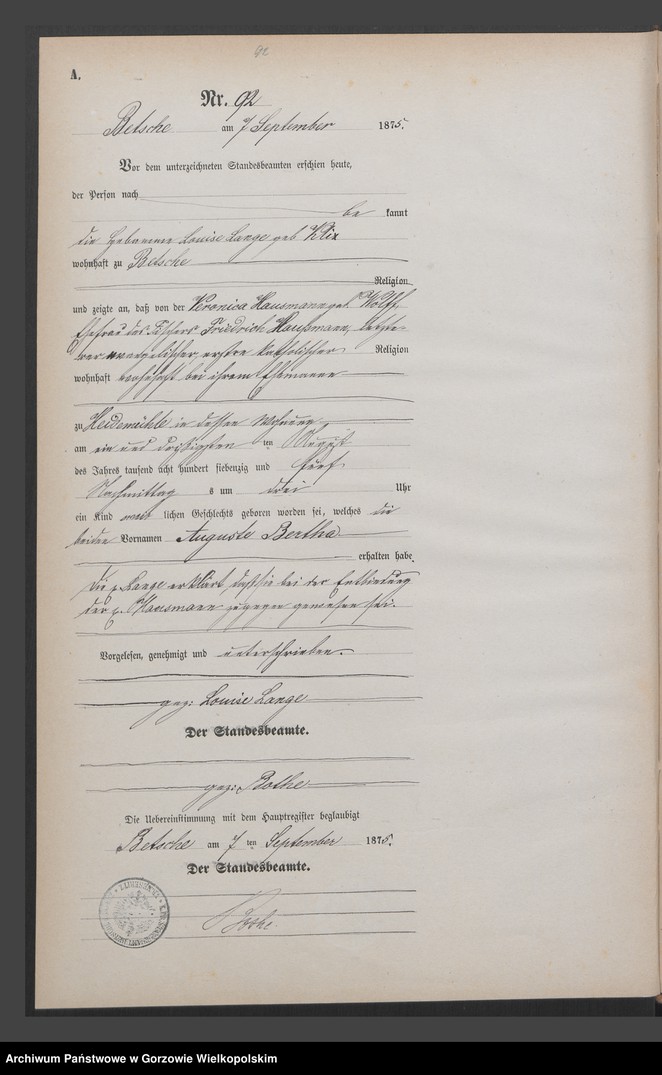 92
A.
Nr. 92
Betsche am 7 September 1875.
Vor dem unterzeichneten Standesbeamten erschien heute,
der Person nach
be kannt
die Hebamme Louise Lange geb Klix
wohnhaft zu Betsche
Religion
und zeigte an, daß von der Veronica Hausmann geb. Wolff
Ehefrau des Friedrich Hausmann, letzte-
rer evangelischer, erstre katholischer Religion
wohnhaft wohnhaft bei ihrem Ehemanne
zu Heidemühle in dessen Wohnung
am ein und dreißigsten ten August
des Jahres tausend acht hundert siebenzig und fünf
Nachmittag s um drei Uhr
ein Kind weib lichen Geschlechts geboren worden sei, welches die
beiden Vornamen Auguste Bertha
erhalten habe.
Die p. Lange erklärt daß sie bei der Entbindung
der p. Hausmann zugegen gewesen sei.
Vorgelesen, genehmigt und unterschrieben.
gez: Louise Lange
Der Standesbeamte.
gez: Bothe
Die Uebereinstimmung mit dem Hauptregister beglaubigt
Betsche am 7 ten September 1875.
Der Standesbeamte.
Bothe
Archiwum Państwowe w Gorzowie Wielkopolskim